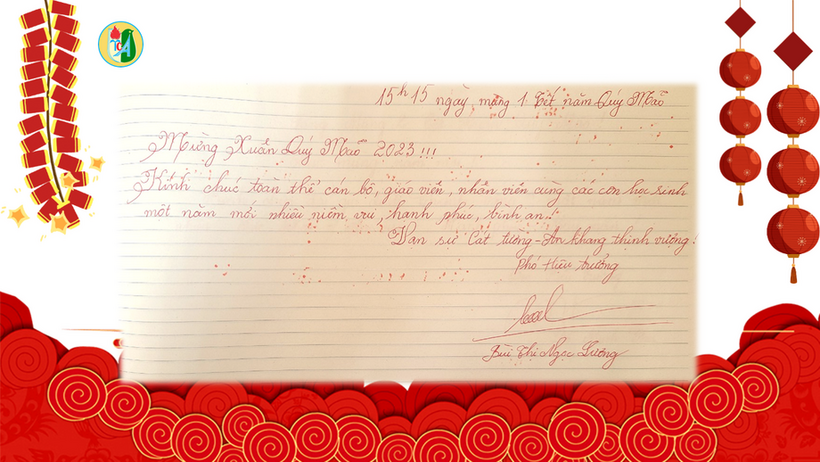 TCA
15h15 ngày mồng 1 Tết năm Quý Mão
Mừng Xuân Quý Mão 2023!!!
Kính chúc toàn thể cán bộ, giáo viên, nhân viên cùng các con học sinh
một năm mới nhiều niềm vui, hạnh phúc, bình an.
Vạn sự Cát tường - An khang thịnh vượng!
Phó Hiệu trưởng
Bùi Thị Ngọc Lương